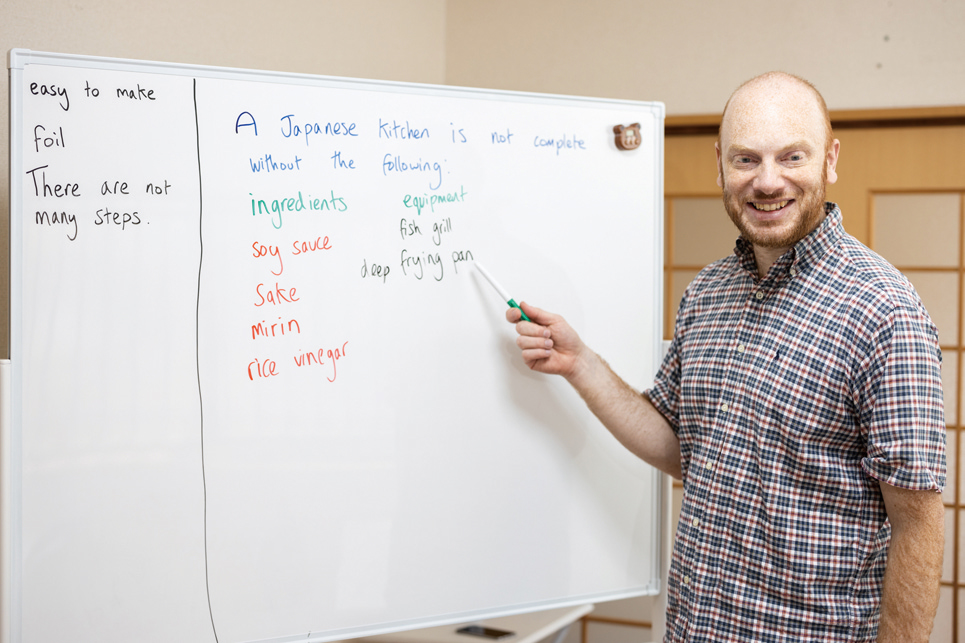 easy to make
foil
There are not
many steps.
A Japanese Kitchen is not complete
without the following:
ingredients
soy sauce
Sake
mirin
rice vinegar
equipment
fish grill
deep frying pan